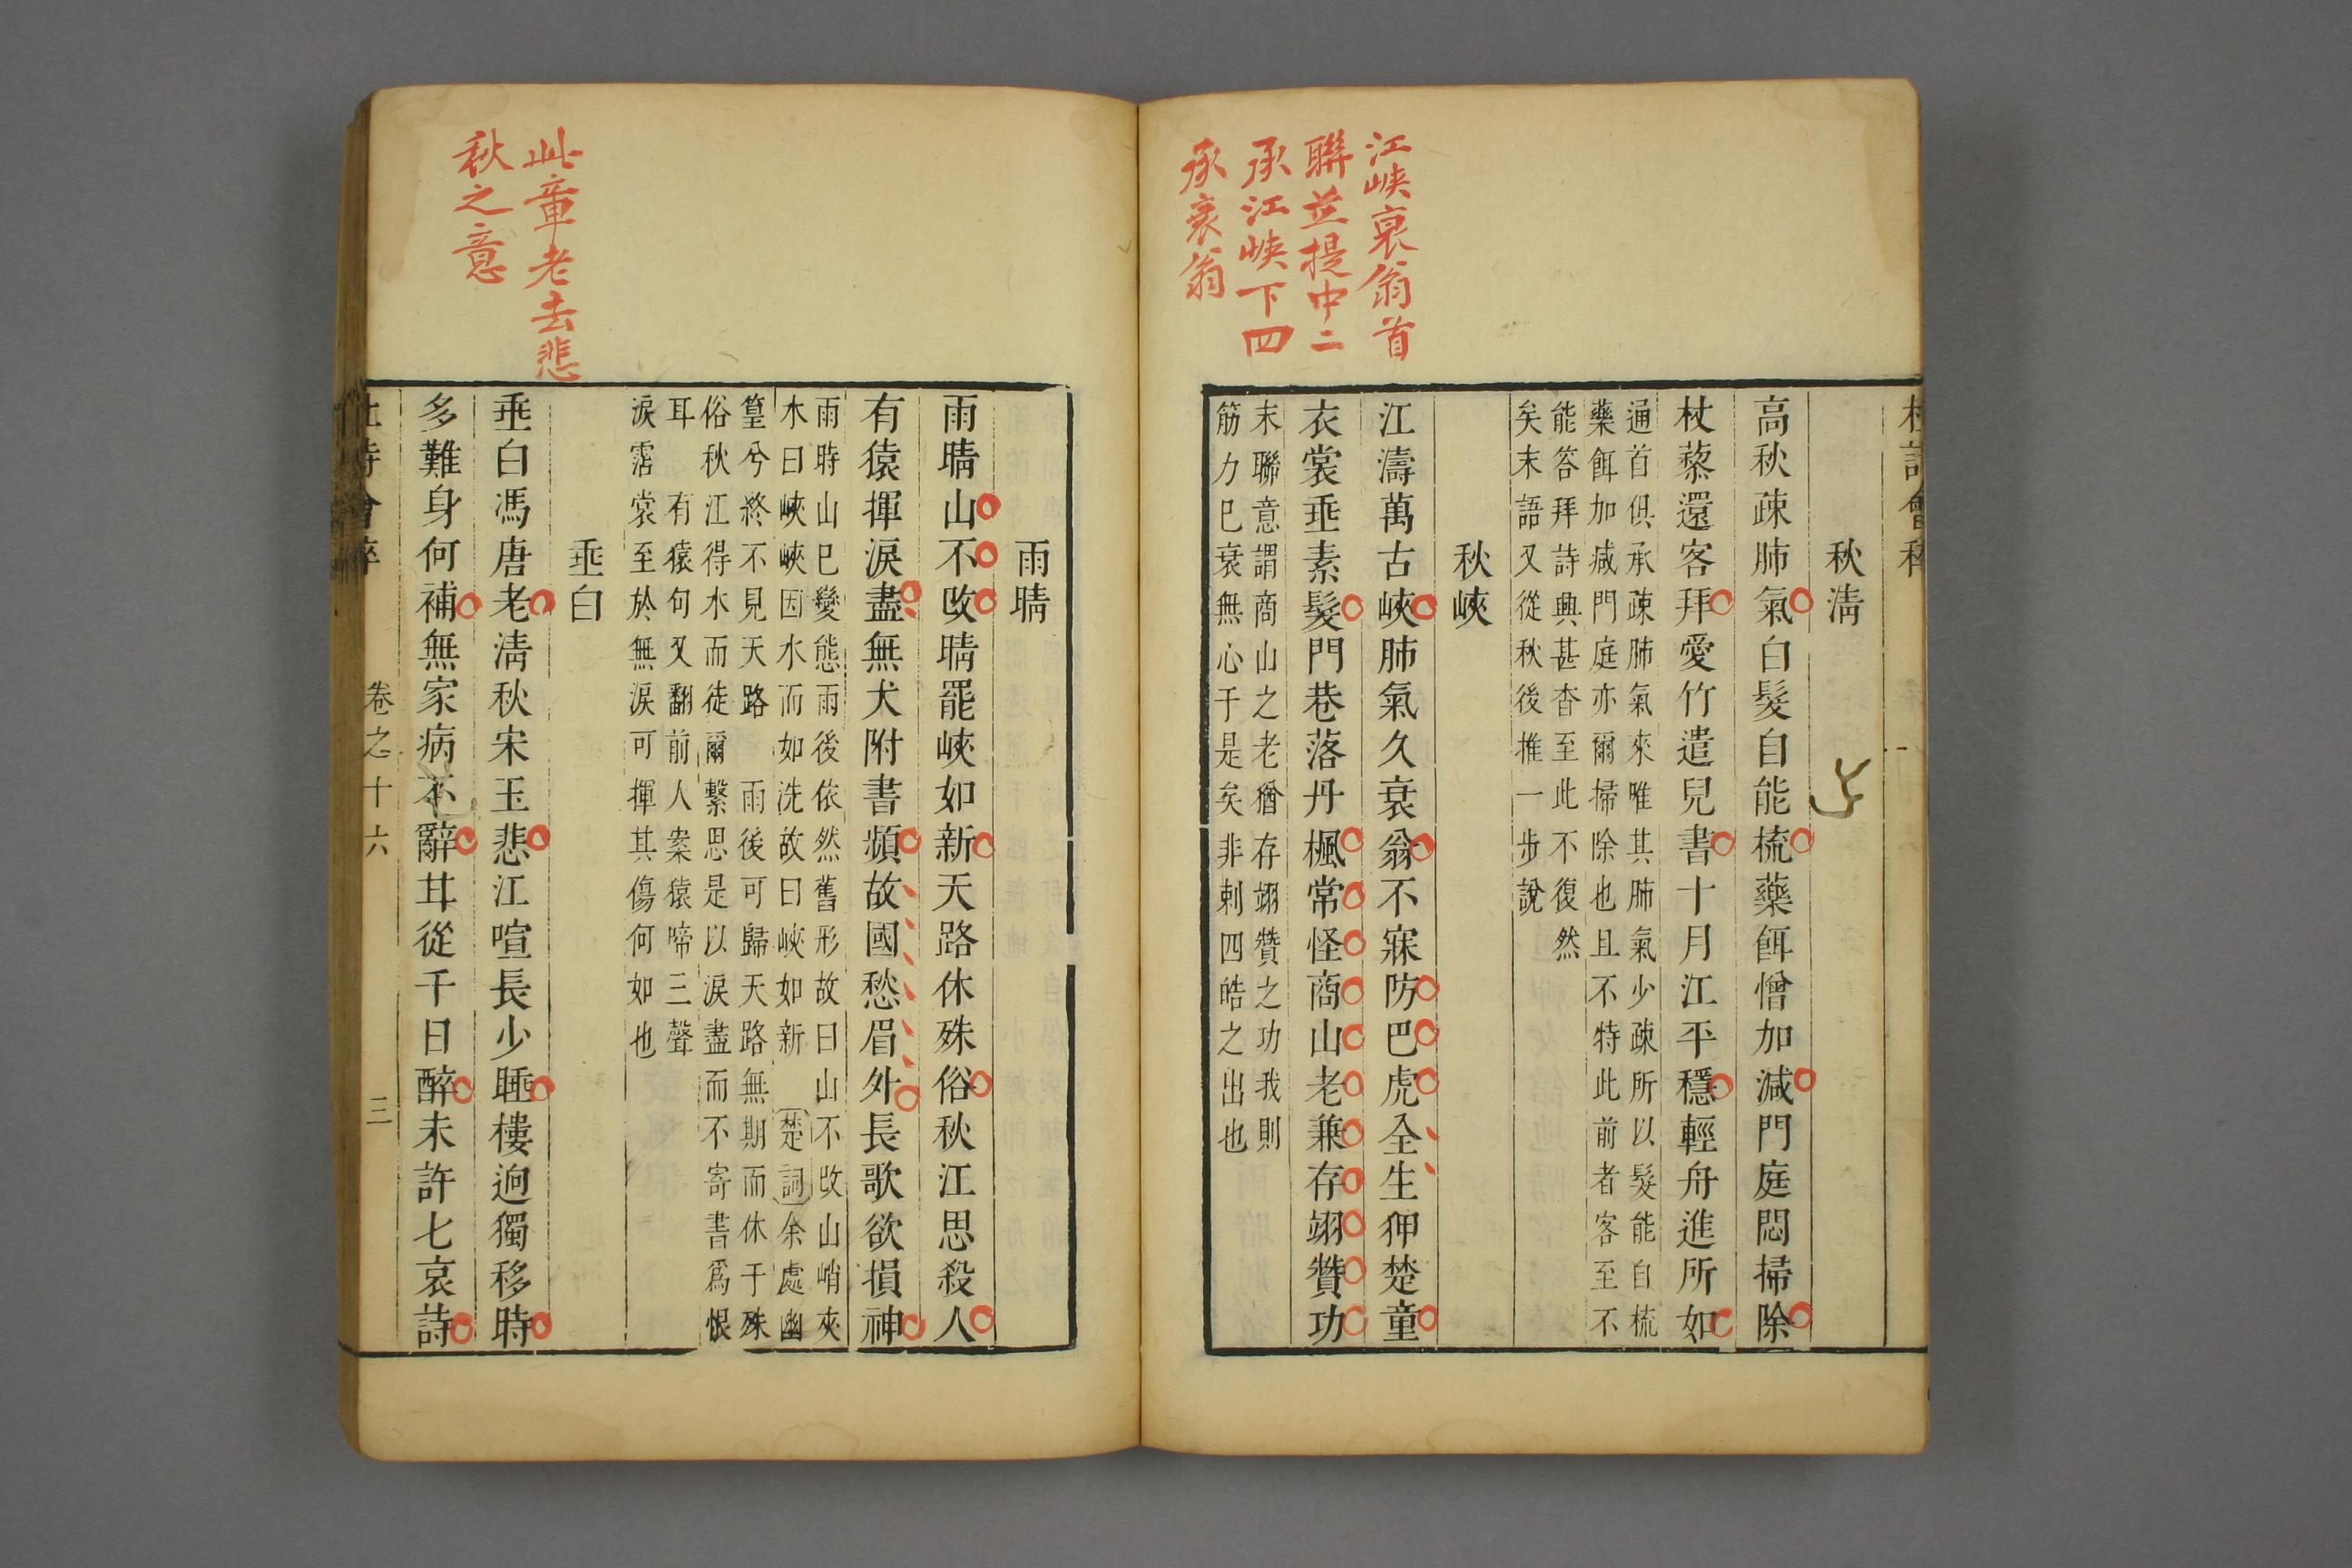 江峽衰翁首
聯並提中二
承江峽下四
承衰翁
秋淸
高秋疎肺氣白髮自能梳藥餌憎加減門庭悶掃除
杖藜還客拜愛竹遣兒書十月江平穩輕舟進所如
通首俱承疎肺氣來唯其肺氣少疎所以髮能自梳
藥餌加减門庭亦爾掃除也且不特此前者客至不
能答拜詩興甚杳至此不復然
矣末語又從秋後推一步說
秋峽
江濤萬古峽肺氣久衰翁不寐防巴虎全生狎楚童
衣裳垂素髮門巷落丹楓常怪商山老兼存翊贊功
末聯意謂商山之老猶存翊贊之功我則
筋力已衰無心于是矣非刺四皓之出也
此章老去悲
秋之意
雨晴
雨晴山不改晴罷峽如新天路休殊俗秋江思殺人
有猿揮淚盡無犬附書頻故國愁眉外長歌欲損神
雨時山已變態雨後依然舊形故曰山不改山峭夾
水曰峽峽因水而如洗故曰峽如新楚詞余處幽
篁兮終不見天路 雨後可歸天路無期而休于殊
俗秋江得水而徒爾繫思是以淚盡而不寄書爲恨
耳 有猿句又翻前人案猿啼三聲
淚霑裳至於無淚可揮其傷何如也
垂白
垂白馮唐老淸秋宋玉悲江喧長少睡樓逈獨移時
多難身何補無家病不辭甘從千日醉未許七哀詩
卷之十六 三